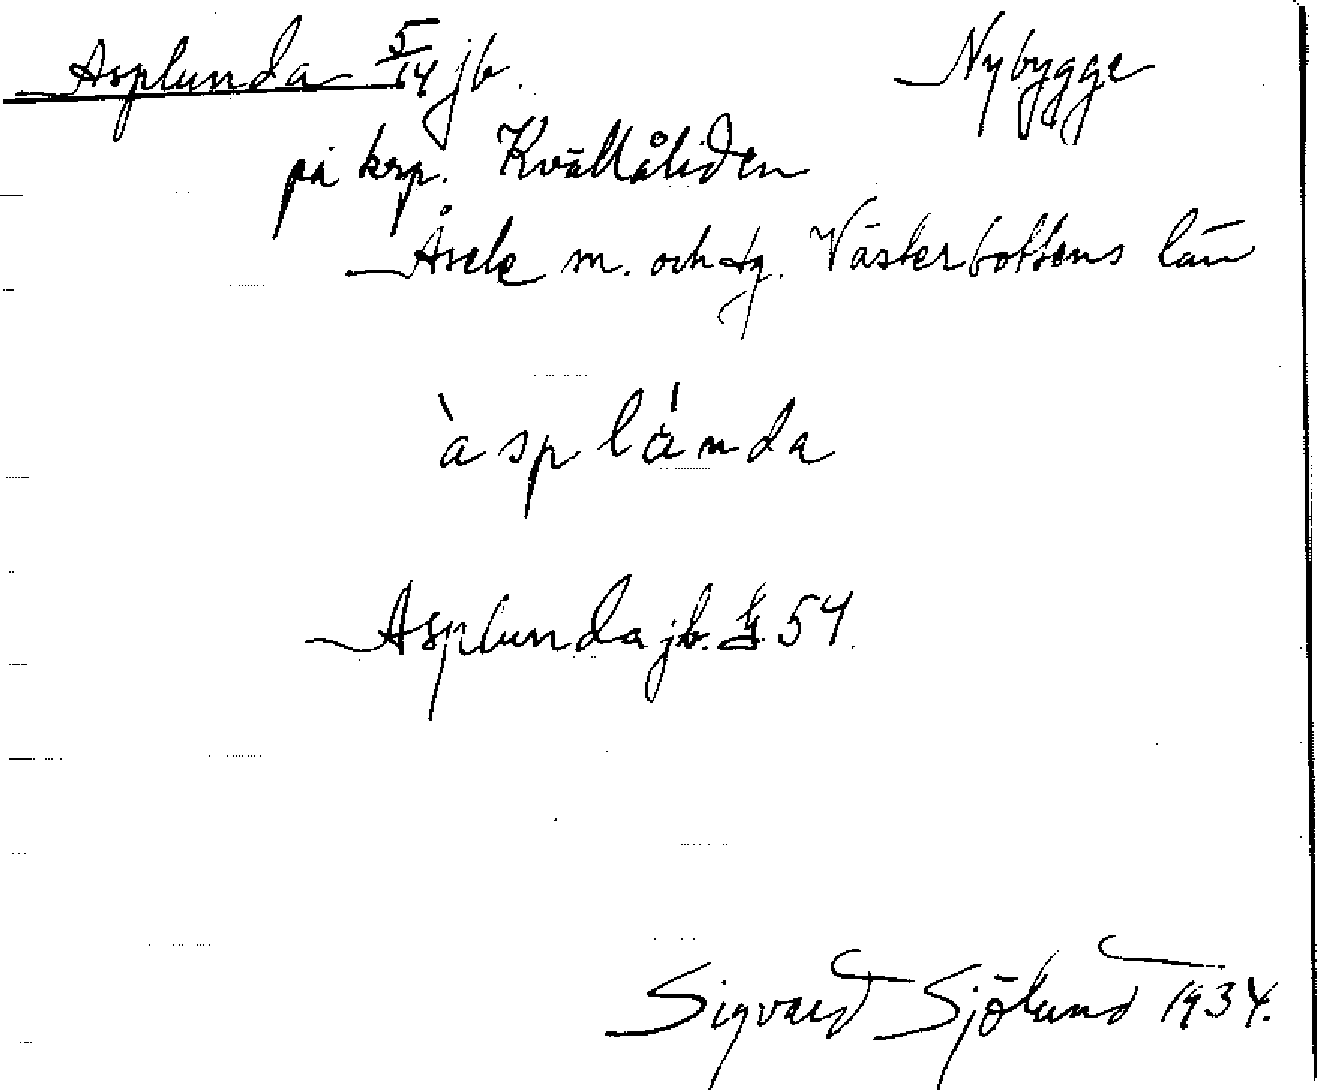 Asplunda 5/14 jb. Nybygge
på krp. Kvällåliden
Åsele sn. och tg. Västerbottens län
àsplánda
Asplunda jb. 54.
Sigvard Sjölund 1934.